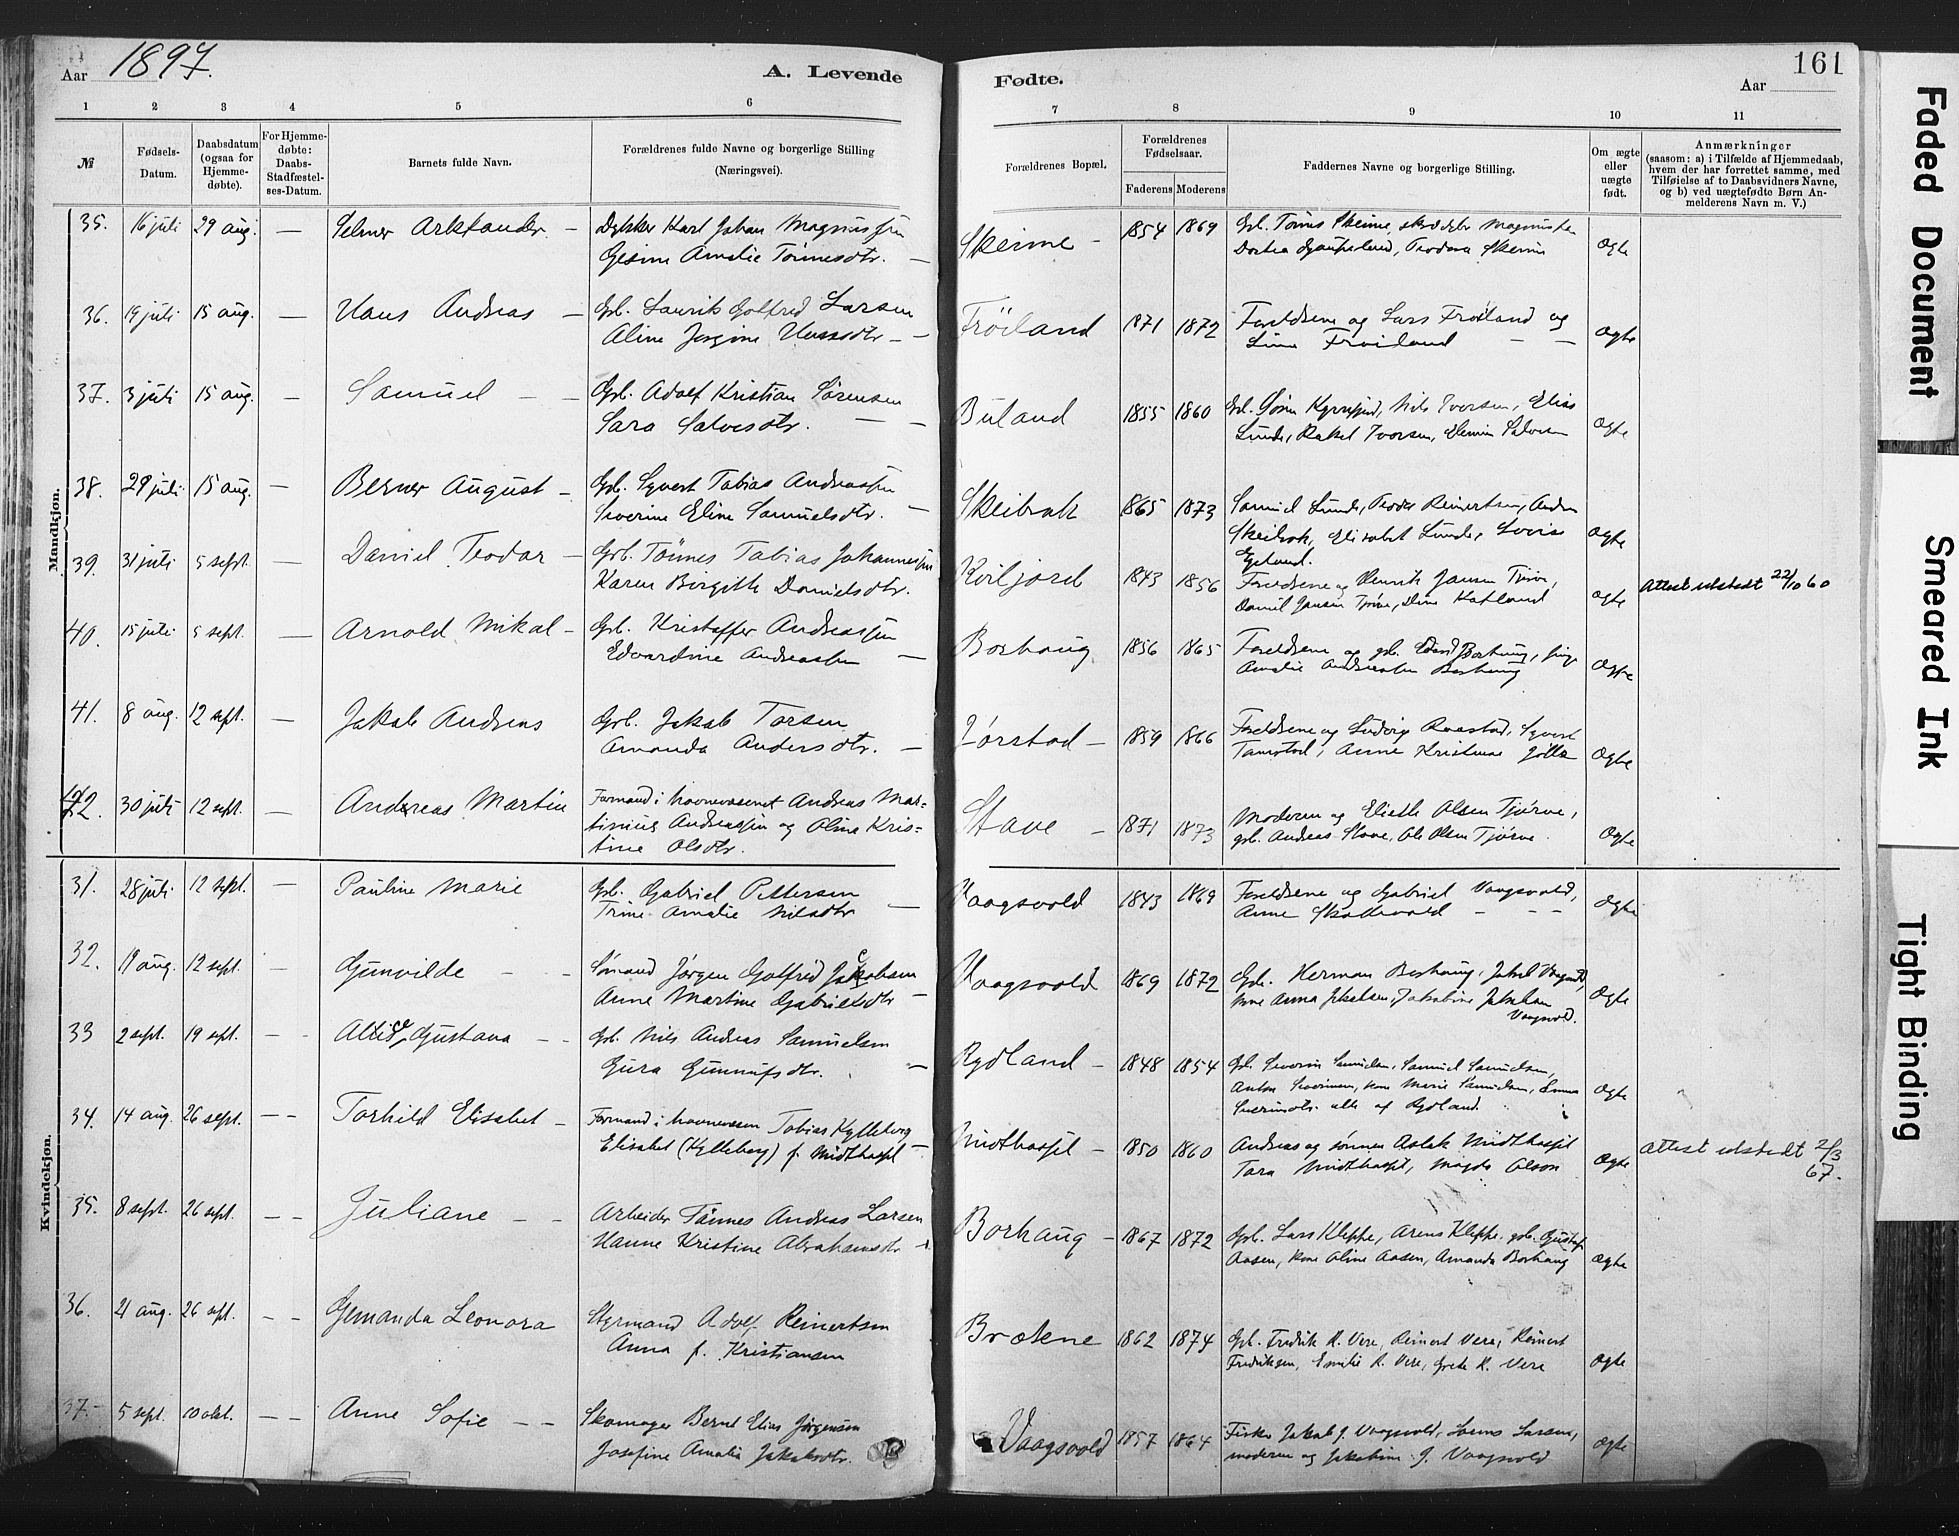 Aar 1897.
A. Levende
Fødte.
161
Aar
1 2 3 4 5 6 7 8 9 10 11
№
Fødsels-
Datum.
Daabsdatum
(ogsaa for
Hjemme-
døbte).
For Hjemme-
døbte:
Daabs-
Stadfæstel-
ses-Datum.
Barnets fulde Navn.
Forældrenes fulde Navne og borgerlige Stilling
(Næringsvei).
Forældrenes Bopæl.
Forældrenes
Fødselsaar.
Faderens Moderens
Faddernes Navne og borgerlige Stilling.
Om ægte
eller
uægte
født.
Anmærkninger
(saasom: a) i Tilfælde af Hjemmedaab,
hvem der har forrettet samme, med
Tilføielse af to Daabsvidners Navne,
og b) ved uægtefødte Børn An-
melderens Navn m. V.)
Mandkjøn.
35. 16 juli 29 aug. — Selmer Arktander — Dykker Karl Johan Magnussen
Gesine Amalie Tønnesdtr. —
Skeime — 1854 1869 Gbl. Tønnes Skeime,
Dortea Teodora Skeime
Ægte
36. 19 juli 15 aug. — Hans Andreas — Gbl. Laurits Gotfred Larsen
Aline Jorgine Hansdtr — —
Frøiland 1871 1872 Foreldrene og Lars Frøiland og
Line Frøiland — —
Ægte
37. 3 juli 15 aug. — Samuel — — Gbl. Adolf Kristian Sørensen
Sara Salvesdtr. — —
Buland 1855 1860 Gbl. Søren Nils Iversen, Elias
Lunde, Rakel Iversen, Salvesen
Ægte
38. 29 juli 15 aug. — Berner August — Gbl. Syvert Tobias Andreassen
Severine Eline Samuelsdtr. —
Skeibrok 1865 1873 Samuel Lunde, Peder Reinertsen, Anders
Skeibrok, Elisabet Lunde, Lovise
Egeland.
Ægte
39. 31 juli 5 sept. — Daniel Teodor — Gbl. Tønnes Tobias Johannessen
Karen Birgitte Danielsdtr.
Kviljord 1843 1856 Foreldrene og Henrik Jansen Tjørve,
Daniel Jansen Tjørve, Dine Hatland
Ægte
Attest utstedt 22/10 60
40. 15 juli 5 sept. — Arnold Mikal — Gbl. Kristoffer Andreassen
Edvardine Andreassen —
Borhaug 1856 1865 Foreldrene og gbl. Edvard Borhaug,
Amalie Andreassen Borhaug
Ægte
41. 8 aug. 12 sept. — Jakob Andreas Gbl. Jakob Torsen
Amanda Andersdtr. —
Tørstad — 1859 1866 Foreldrene og Ludvig Syvert
Anne Kristine
Ægte
42. 30 juli 12 sept. — Andreas Martin Formand i havnevesenet Andreas Mar-
tinius Andreassen og Oline Kris-
tine Olsdtr.
Stave — 1871 1873 Moderen og Elisabeth Olsen Tjørve,
gbl. Andreas Stave, Ole Olsen Tjørve.
Ægte
Kvindekjøn.
31. 28 juli 12 sept. — Pauline Marie Gbl. Gabriel Pettersen
Trine Amalie Nilsdtr —
Vaagsvold 1843 1869 Foreldrene og Gabriel Vaagsvold,
Anne Skollevold — — —
Ægte
32. 19 aug. 12 sept. — Gunvilde — — Sømand Jørgen Gotfred Jakobsen
Anne Martine Gabrielsdtr —
Vaagsvold 1869 1872 Gbl. Herman Borhaug, Jakob Vaagsvold,
kone Anna Jakobsen, Jakobine Jakobsen
Vaagsvold.
Ægte
33 2 sept. 19 sept. — - Altise Gustava — — Gbl. Nils Andreas Samuelsen
Gura Gunnufsdtr. —
Rydland — 1848 1854 Gbl. Severin Samuelsen, Samuel Samuelsen,
Anton Severinsen, kone Marie Samuelsen, Emma
Severinsdtr. alle af Rydland.
Ægte
34. 14 aug. 26 sept. — — Torhild Elisabet — Formand i havnevesen Tobias Kylleberg
Elisabet (Kylleberg) f. Midthassel —
Midthassel — 1850 1860 Andreas og sønnen Aslak Midthassel
Tora Midthassel, Magda Olson
Ægte
Attest utstedt 2/3
67.
35. 8 sept. 26 sept. — — Juliane — — Arbeider Tønnes Andreas Larsen
Hanne Kristine Abrahamsdtr —
Borhaug — 1867 1872 Gbl. Lars Kleppe, Arens Kleppe, gbl. Gustaf
Aasen, kone Oline Aasen, Amanda Borhaug
Ægte
36. 21 aug. 26 sept. — — Gemanda Leonora Styrmand Adolf Reinertsen
Anna f. Kristiansen
Brækne 1862 1874 Gbl. Fredrik R. Vere, Reinert Vere, Reinert
Fredriksen, Emilie R. Vere, Grete R. Vere
Ægte
37. 5 sept. 10 okt. — — Anne Sofie — — Skomager Bernt Elias Jørgensen
Josefine Amalia Jakobsdtr.
Vaagsvold 1857 1864 Fisker Jakob J. Vaagsvold, Larsen,
moderen og Jakobine J. Vaagsvold
Ægte
Faded Document
Smeared Ink
Tight Binding